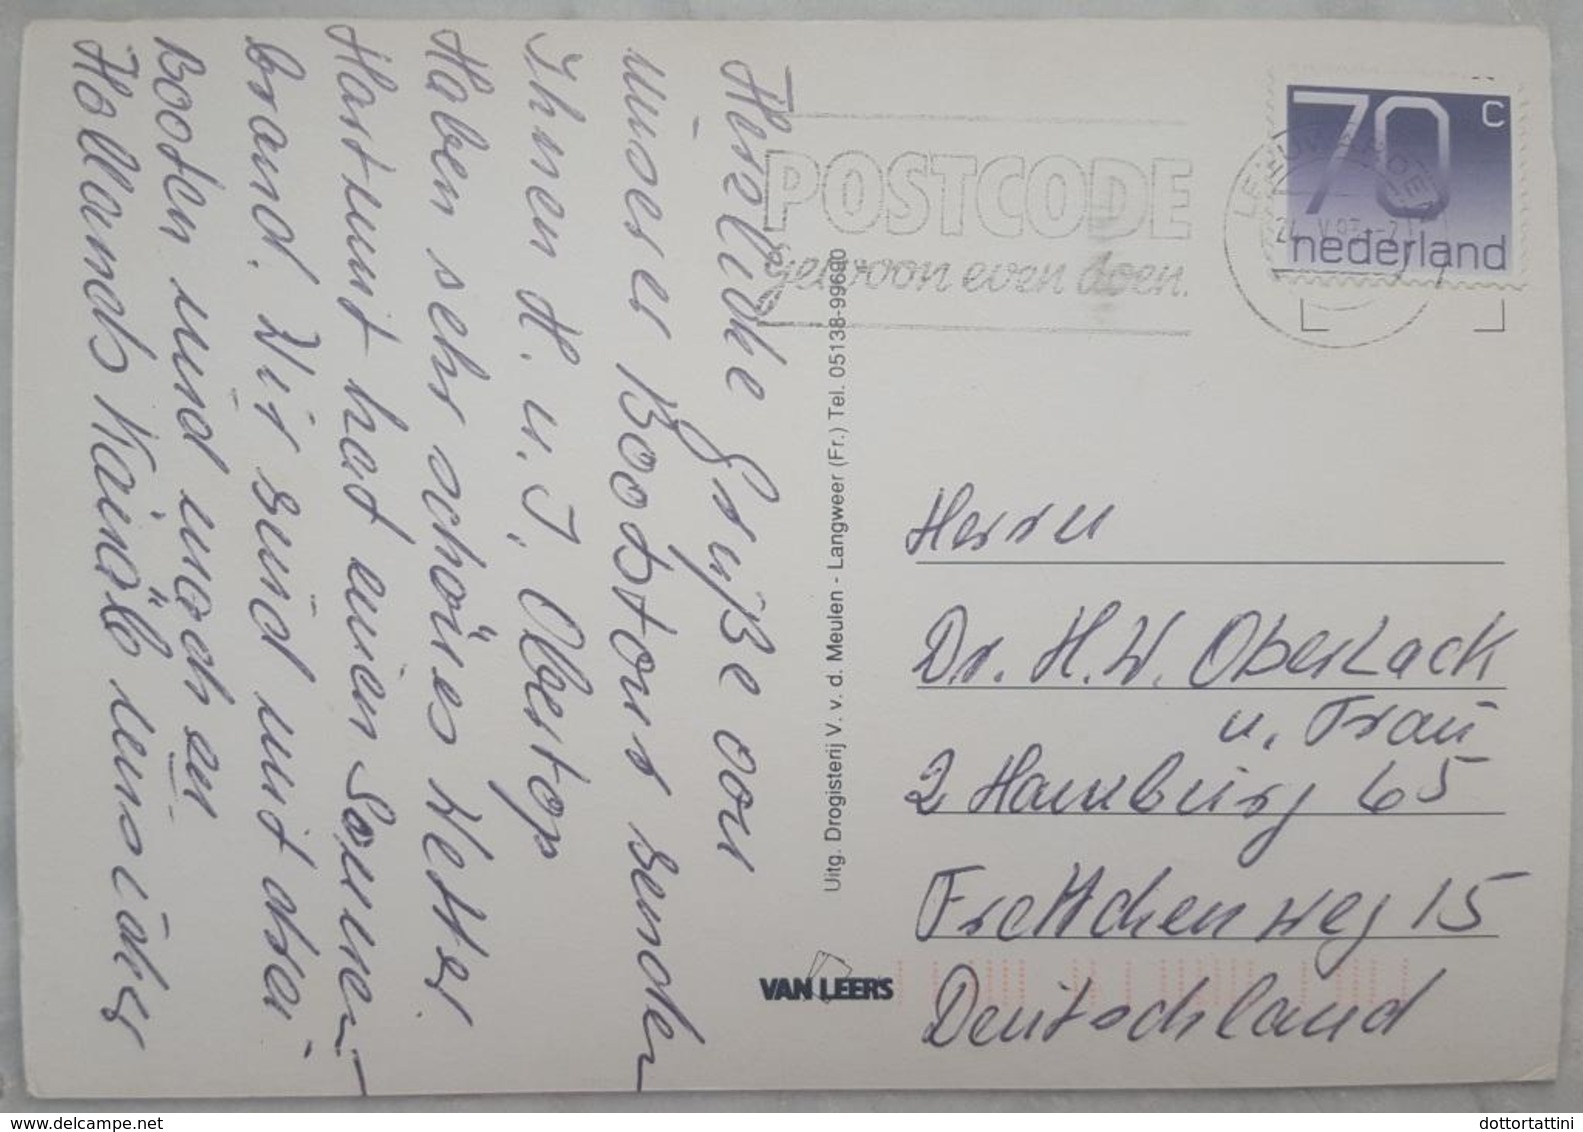 Herzliche Grüße von
unserer Bootstour senden
Ihnen H. u. I. Obertop
Haben sehr schönes Wetter,
Hartmut hat einen Sonnen-
brand. Wir sind mit drei
Booten und
Hollands Kanäle unsicher
POSTCODE
gewoon even doen.
70 c
nederland
Uitg. Drogisterij V. v. d. Meulen - Langweer (Fr.) Tel. 05138-99690
VAN LEER'S
Herrn
Dr. H. W. Oberlack
u. Frau
2 Hamburg 65
Frettchenweg 15
Deutschland
www.delcampe.net
dottortattini